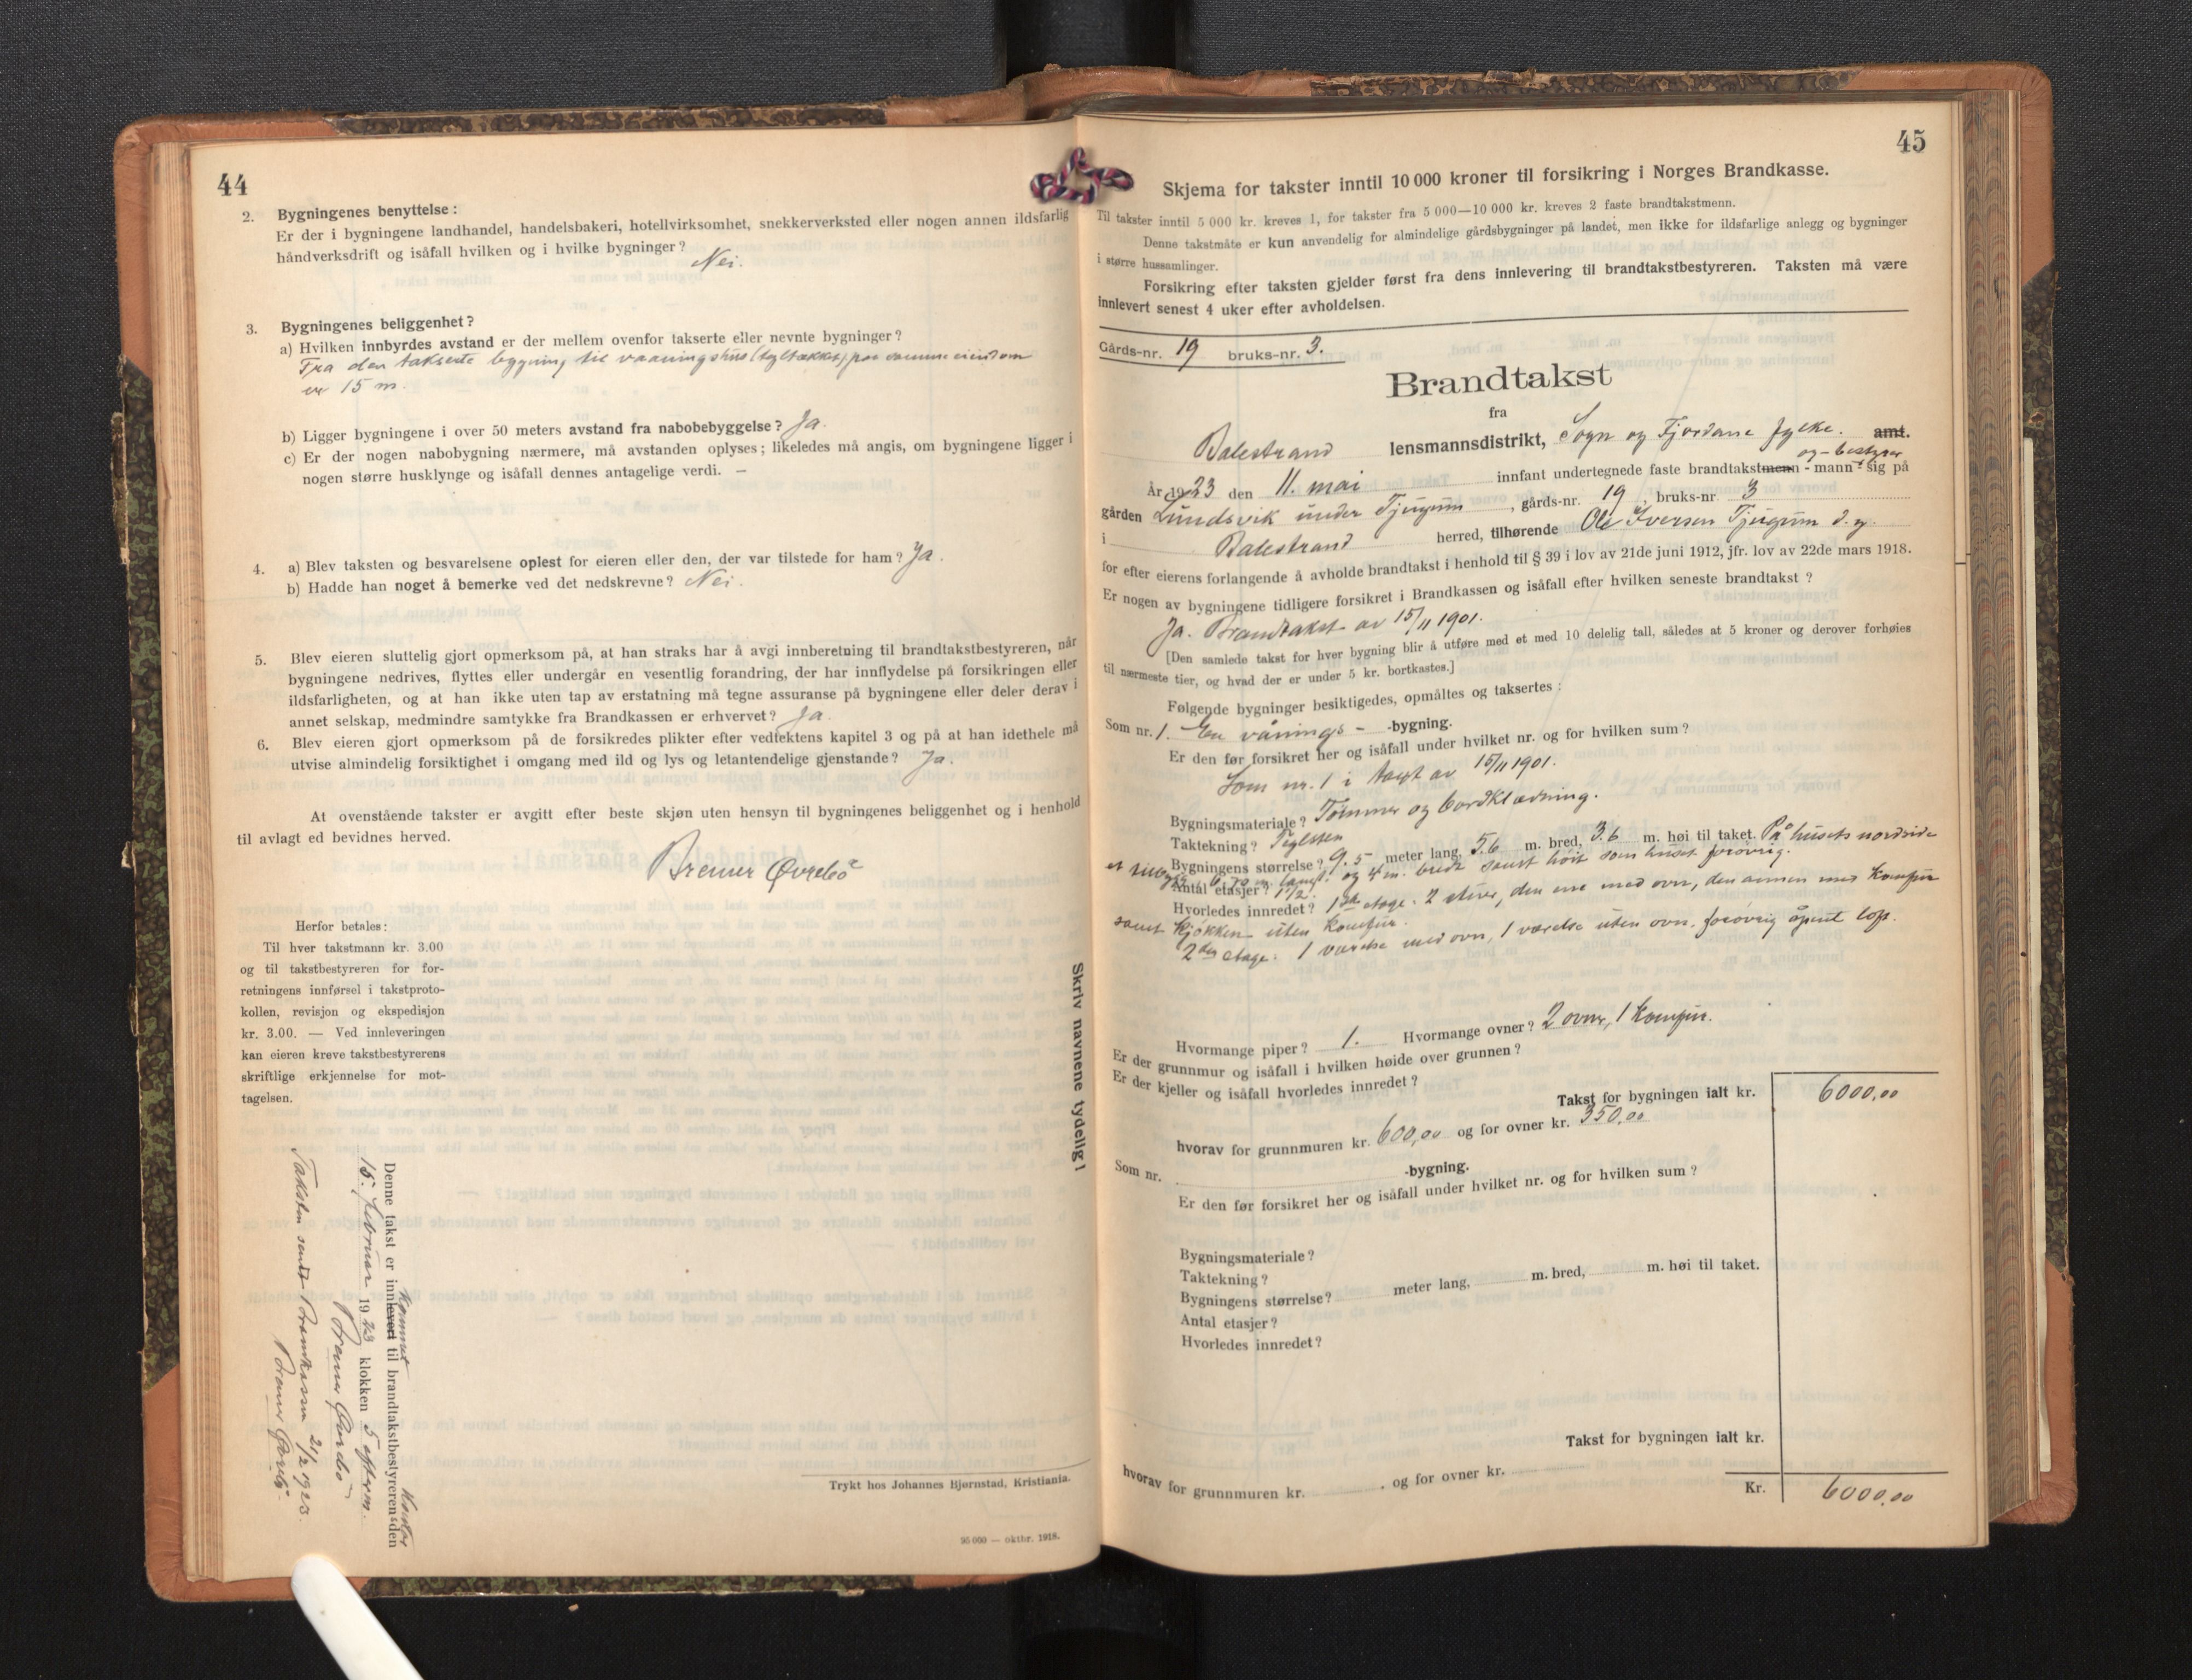 44
2. Bygningenes benyttelse:
Er der i bygningene landhandel, handelsbakeri, hotellvirksomhet, snekkerverksted eller nogen annen ildsfarlig
håndverksdrift og isåfall hvilken og i hvilke bygninger? Nei.
3. Bygningenes beliggenhet?
a) Hvilken innbyrdes avstand er der mellem ovenfor takserte eller nevnte bygninger?
Fra den takserte bygning til vaaningshus (teglstækket) paa samme eiendom
er 15 m.
b) Ligger bygningene i over 50 meters avstand fra nabobebyggelse? Ja.
c) Er der nogen nabobygning nærmere, må avstanden oplyses; likeledes må angis, om bygningene ligger i
nogen større husklynge og isåfall dennes antagelige verdi. —
4. a) Blev taksten og besvarelsene oplest for eieren eller den, der var tilstede for ham? Ja.
b) Hadde han noget å bemerke ved det nedskrevne? Nei.
5. Blev eieren sluttelig gjort opmerksom på, at han straks har å avgi innberetning til brandtakstbestyreren, når
bygningene nedrives, flyttes eller undergår en vesentlig forandring, der har innflydelse på forsikringen eller
ildsfarligheten, og at han ikke uten tap av erstatning må tegne assuranse på bygningene eller deler derav i
annet selskap, medmindre samtykke fra Brandkassen er erhvervet? Ja.
6. Blev eieren gjort opmerksom på de forsikredes plikter efter vedtektens kapitel 3 og på at han idethele må
utvise almindelig forsiktighet i omgang med ild og lys og letantendelige gjenstande? Ja.
At ovenstående takster er avgitt efter beste skjøn uten hensyn til bygningenes beliggenhet og i henhold
til avlagt ed bevidnes herved.
Bremer Øvrebö
Herfor betales:
Til hver takstmann kr. 3.00
og til takstbestyreren for for-
retningens innførsel i takstproto-
kollen, revisjon og ekspedisjon
kr. 3.00. — Ved innleveringen
kan eieren kreve takstbestyrerens
skriftlige erkjennelse for mot-
tagelsen.
Denne takst er innlevert til brandtakstbestyreren den
15. februar 1923 klokken 5 efterm.
Bremer Øvrebö
Taksten sendt Brandkassen 21/2 1923.
Bremer Øvrebö
Skriv navnene tydelig!
Trykt hos Johannes Bjørnstad, Kristiania.
95 000 — oktbr. 1918.
45
Skjema for takster inntil 10 000 kroner til forsikring i Norges Brandkasse.
Til takster inntil 5 000 kr. kreves 1, for takster fra 5 000—10 000 kr. kreves 2 faste brandtakstmenn.
Denne takstmåte er kun anvendelig for almindelige gårdsbygninger på landet, men ikke for ildsfarlige anlegg og bygninger
i større hussamlinger.
Forsikring efter taksten gjelder først fra dens innlevering til brandtakstbestyreren. Taksten må være
innlevert senest 4 uker efter avholdelsen.
Gårds-nr. 19 bruks-nr. 3.
Brandtakst
fra
Balestrand lensmannsdistrikt, Sogn og Fjordane fylke. amt.
og - bestyrer
År 1923 den 11. mai innfant undertegnede faste brandtakstmenn - mann sig på
gården Lundsvik under Tjugum, gårds-nr. 19, bruks-nr 3
i Balestrand herred, tilhørende Ole Iversen Tjugum d.y.
for efter eierens forlangende å avholde brandtakst i henhold til § 39 i lov av 21de juni 1912, jfr. lov av 22de mars 1918.
Er nogen av bygningene tidligere forsikret i Brandkassen og isåfall efter hvilken seneste brandtakst?
Ja. Brandtakst av 15/11 1901.
[Den samlede takst for hver bygning blir å utføre med et med 10 delelig tall, således at 5 kroner og derover forhøies
til nærmeste tier, og hvad der er under 5 kr. bortkastes.]
Følgende bygninger besiktigedes, opmåltes og taksertes:
Som nr. 1. En vånings- -bygning.
Er den før forsikret her og isåfall under hvilket nr. og for hvilken sum?
Som nr. 1 i takst av 15/11 1901.
Bygningsmateriale? Tømmer og bordklædning.
Taktekning? Teglsten
Bygningens størrelse? 9.5 meter lang, 5.6 m. bred, 3.6 m. høi til taket. På husets nordside
et tilbygg 6.70 m. langt og 4 m. bredt samt høit som huset forøvrig.
Antal etasjer? 1 1/2.
Hvorledes innredet? 1ste etage: 2 stuer, den ene med ovn, den annen med komfur
samt kjøkken uten komfur.
2den etage: 1 værelse med ovn, 1 værelse uten ovn, forøvrig åpent loft.
Hvormange piper? 1. Hvormange ovner? 2 ovner, 1 komfur.
Er der grunnmur og isåfall i hvilken høide over grunnen?
Er der kjeller og isåfall hvorledes innredet?
Takst for bygningen ialt kr. 6000,00
hvorav for grunnmuren kr. 600,00 og for ovner kr. 350,00
Som nr. -bygning.
Er den før forsikret her og isåfall under hvilket nr. og for hvilken sum?
Bygningsmateriale?
Taktekning?
Bygningens størrelse? meter lang, m. bred, m. høi til taket.
Antal etasjer?
Hvorledes innredet?
Takst for bygningen ialt kr.
hvorav for grunnmuren kr. , og for ovner kr.
Kr. 6000,00